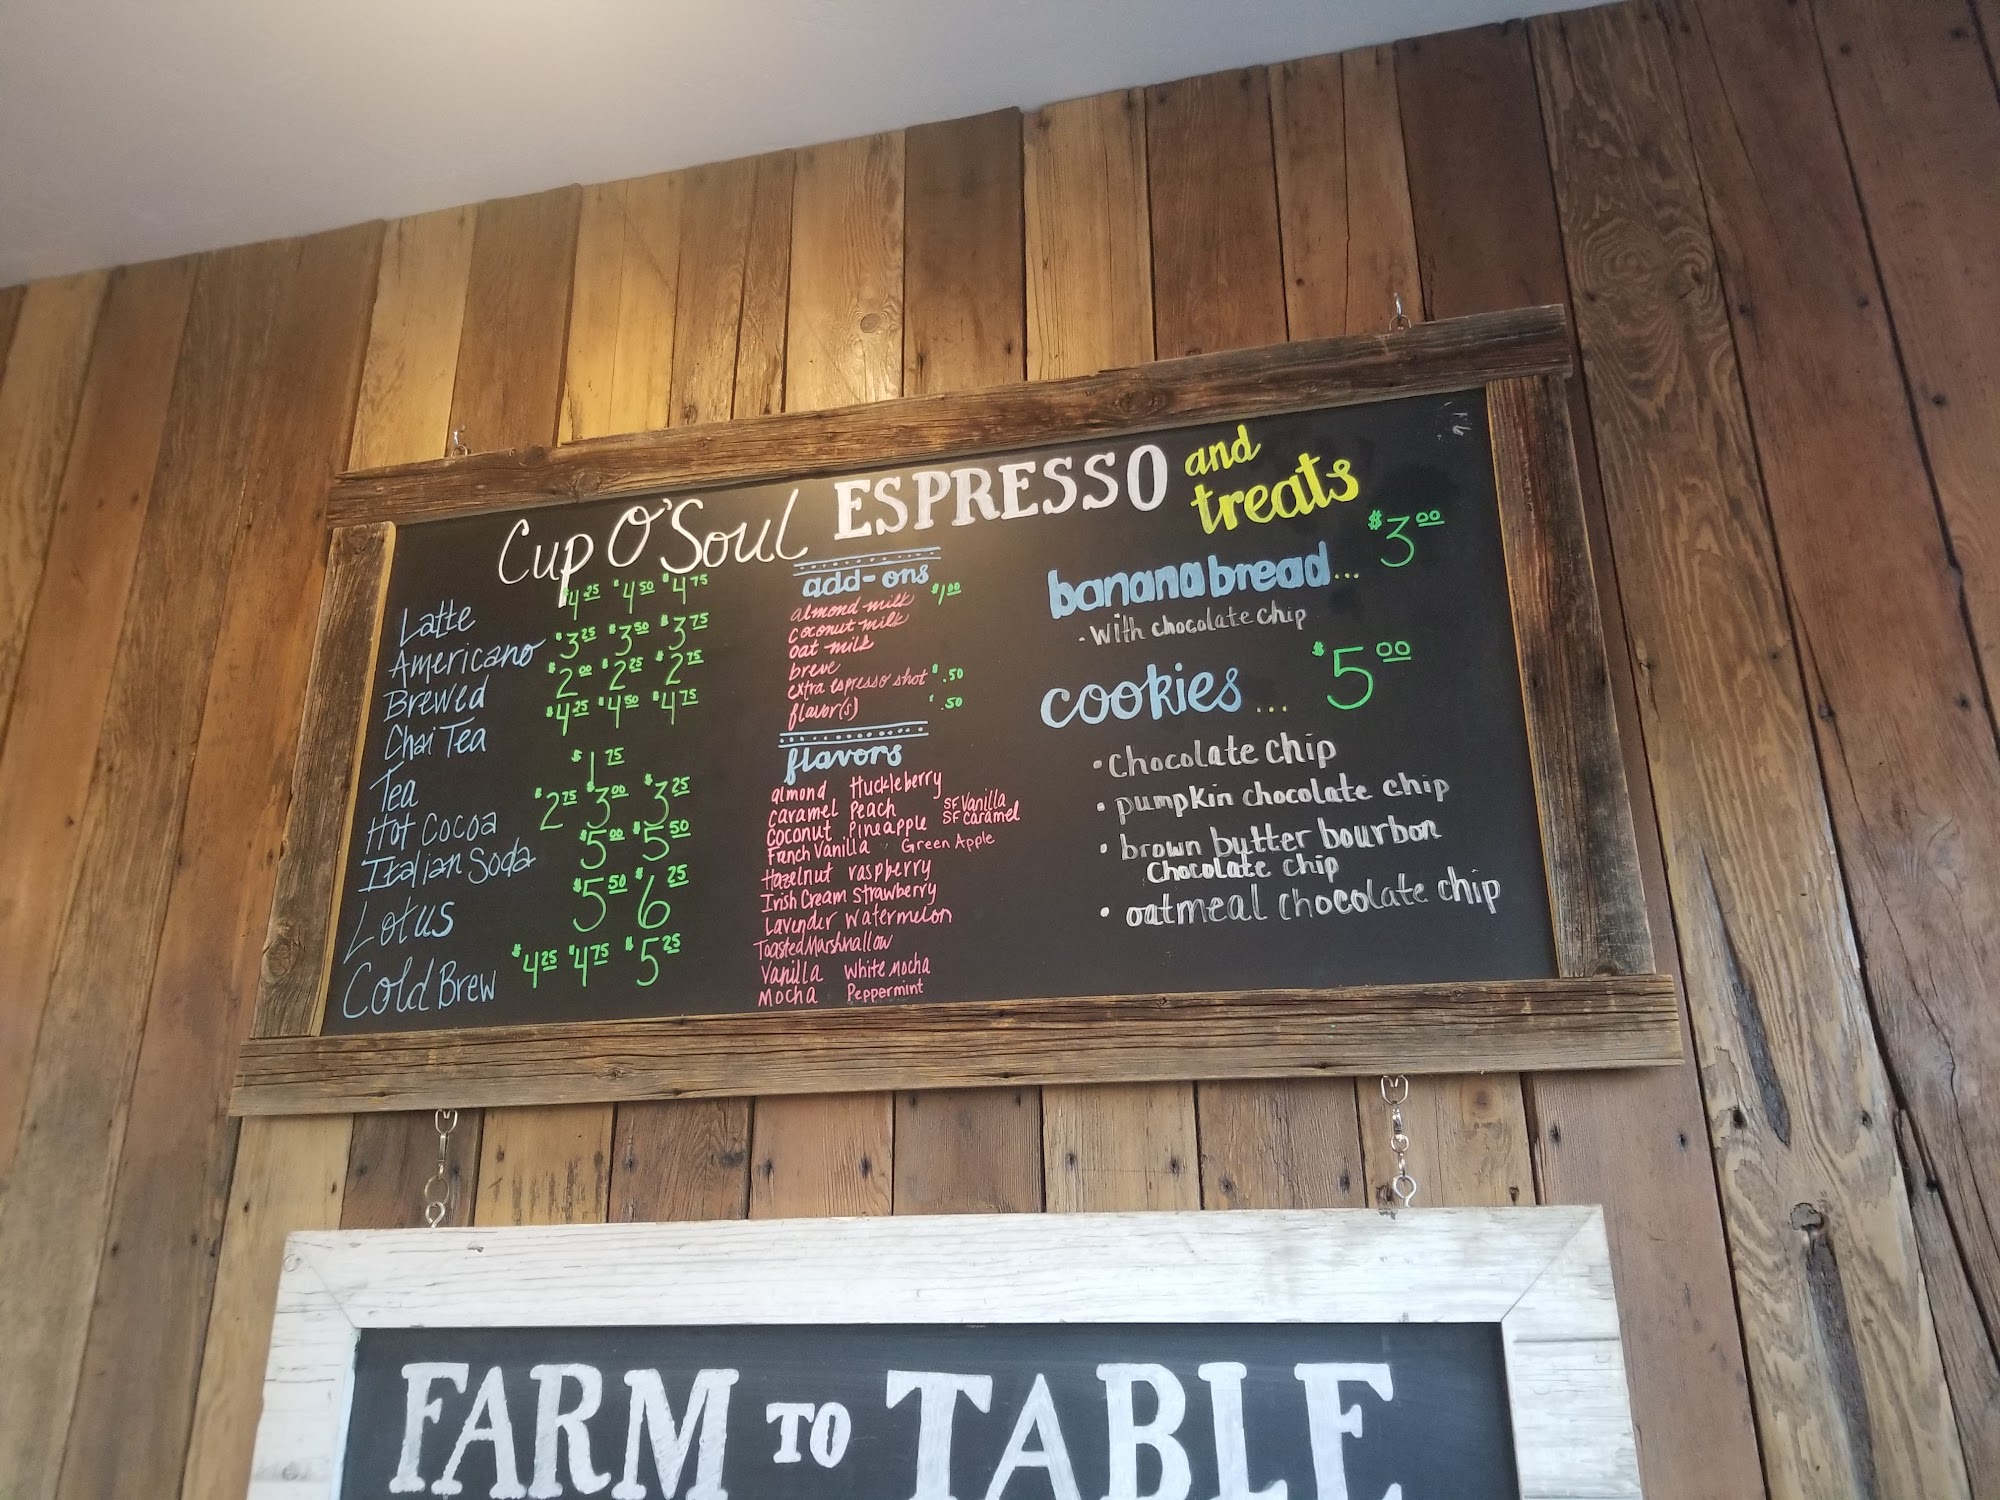 Cup O'Soul ESPRESSO and treats
Latte $4.25 $4.50 $4.75
Americano $3.25 $3.50 $3.75
Brewed $2.00 $2.25 $2.75
Chai Tea $4.25 $4.50 $4.75
Tea $1.75
Hot Cocoa $2.75 $3.00 $3.25
Italian Soda $5.00 $5.50
Lotus $5.50 $6.25
Cold Brew $4.25 $4.75 $5.25
add-ons
almond milk $1.00
coconut milk
oat milk
breve
extra espresso shot $.50
flavor(s) .50
flavors
almond Huckleberry
caramel Peach SF Vanilla
Coconut Pineapple SF caramel
Franch Vanilla Green Apple
Hazelnut raspberry
Irish Cream Strawberry
Lavender Watermelon
Toasted Marshmallow
Vanilla White Mocha
Mocha Peppermint
banana bread... $3.00
- With chocolate chip
cookies... $5.00
• Chocolate chip
• pumpkin chocolate chip
• brown butter bourbon
Chocolate chip
• oatmeal chocolate chip
FARM TO TABLE